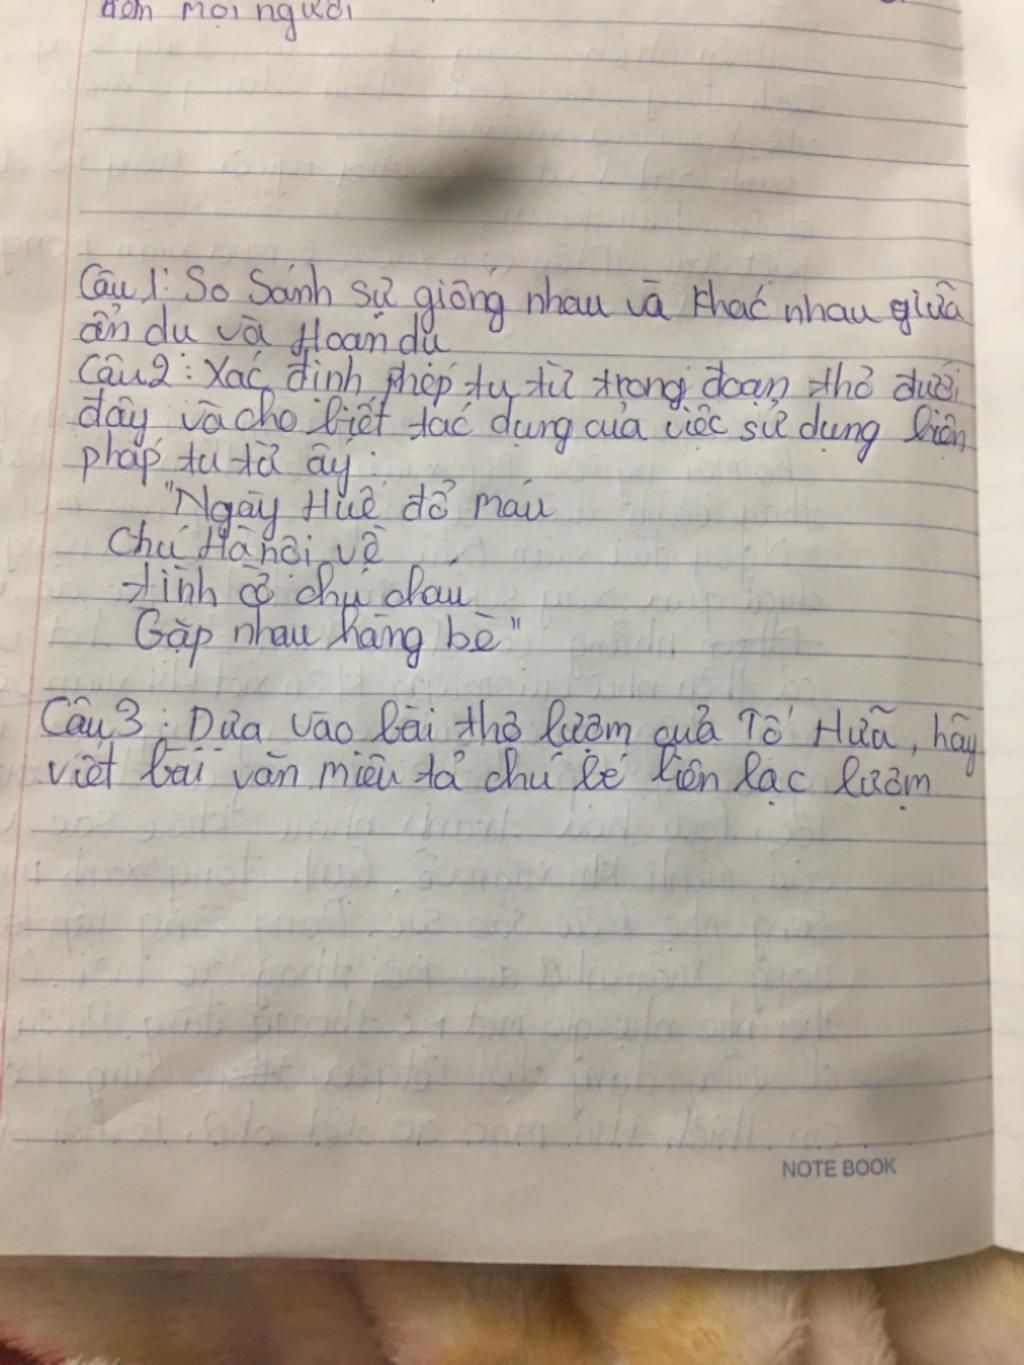 đơm mọi người
Câu 1: So Sánh sự giống nhau và khác nhau giữa
ẩn dụ và Hoán dụ
Câu 2: Xác định phép tu từ trong đoạn thơ dưới
đây và cho biết tác dụng của việc sử dụng biện
pháp tu từ ấy:
"Ngày Huế đổ máu
Chú Hà nội về
tình cờ chú cháu
Gặp nhau hàng bè"
Câu 3: Dựa vào bài thơ lượm quả Tố Hữu, hãy
viết bài văn miêu tả chú bé liên lạc lượm
NOTE BOOK